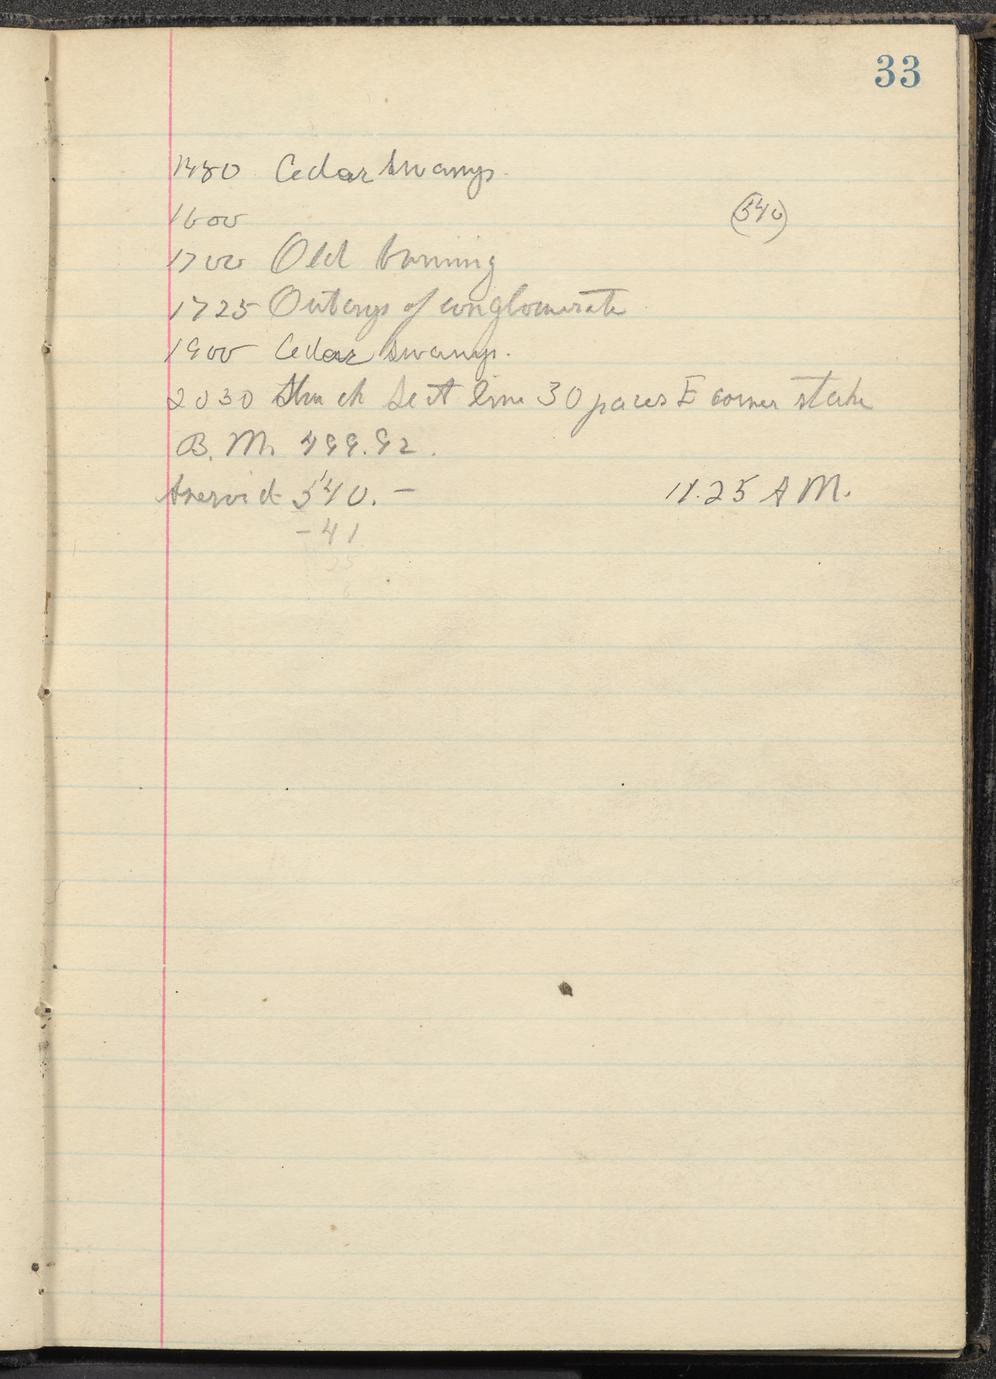 33
1480 Cedar swamp.
1600 (540)
1700 Old burning
1725 Outcrop of conglomerate
1900 Cedar swamp.
2030 Struck Sect line 30 paces E corner stake
B. M. 499.92.
Aneroid 540. – 11.25 A M.
– 41